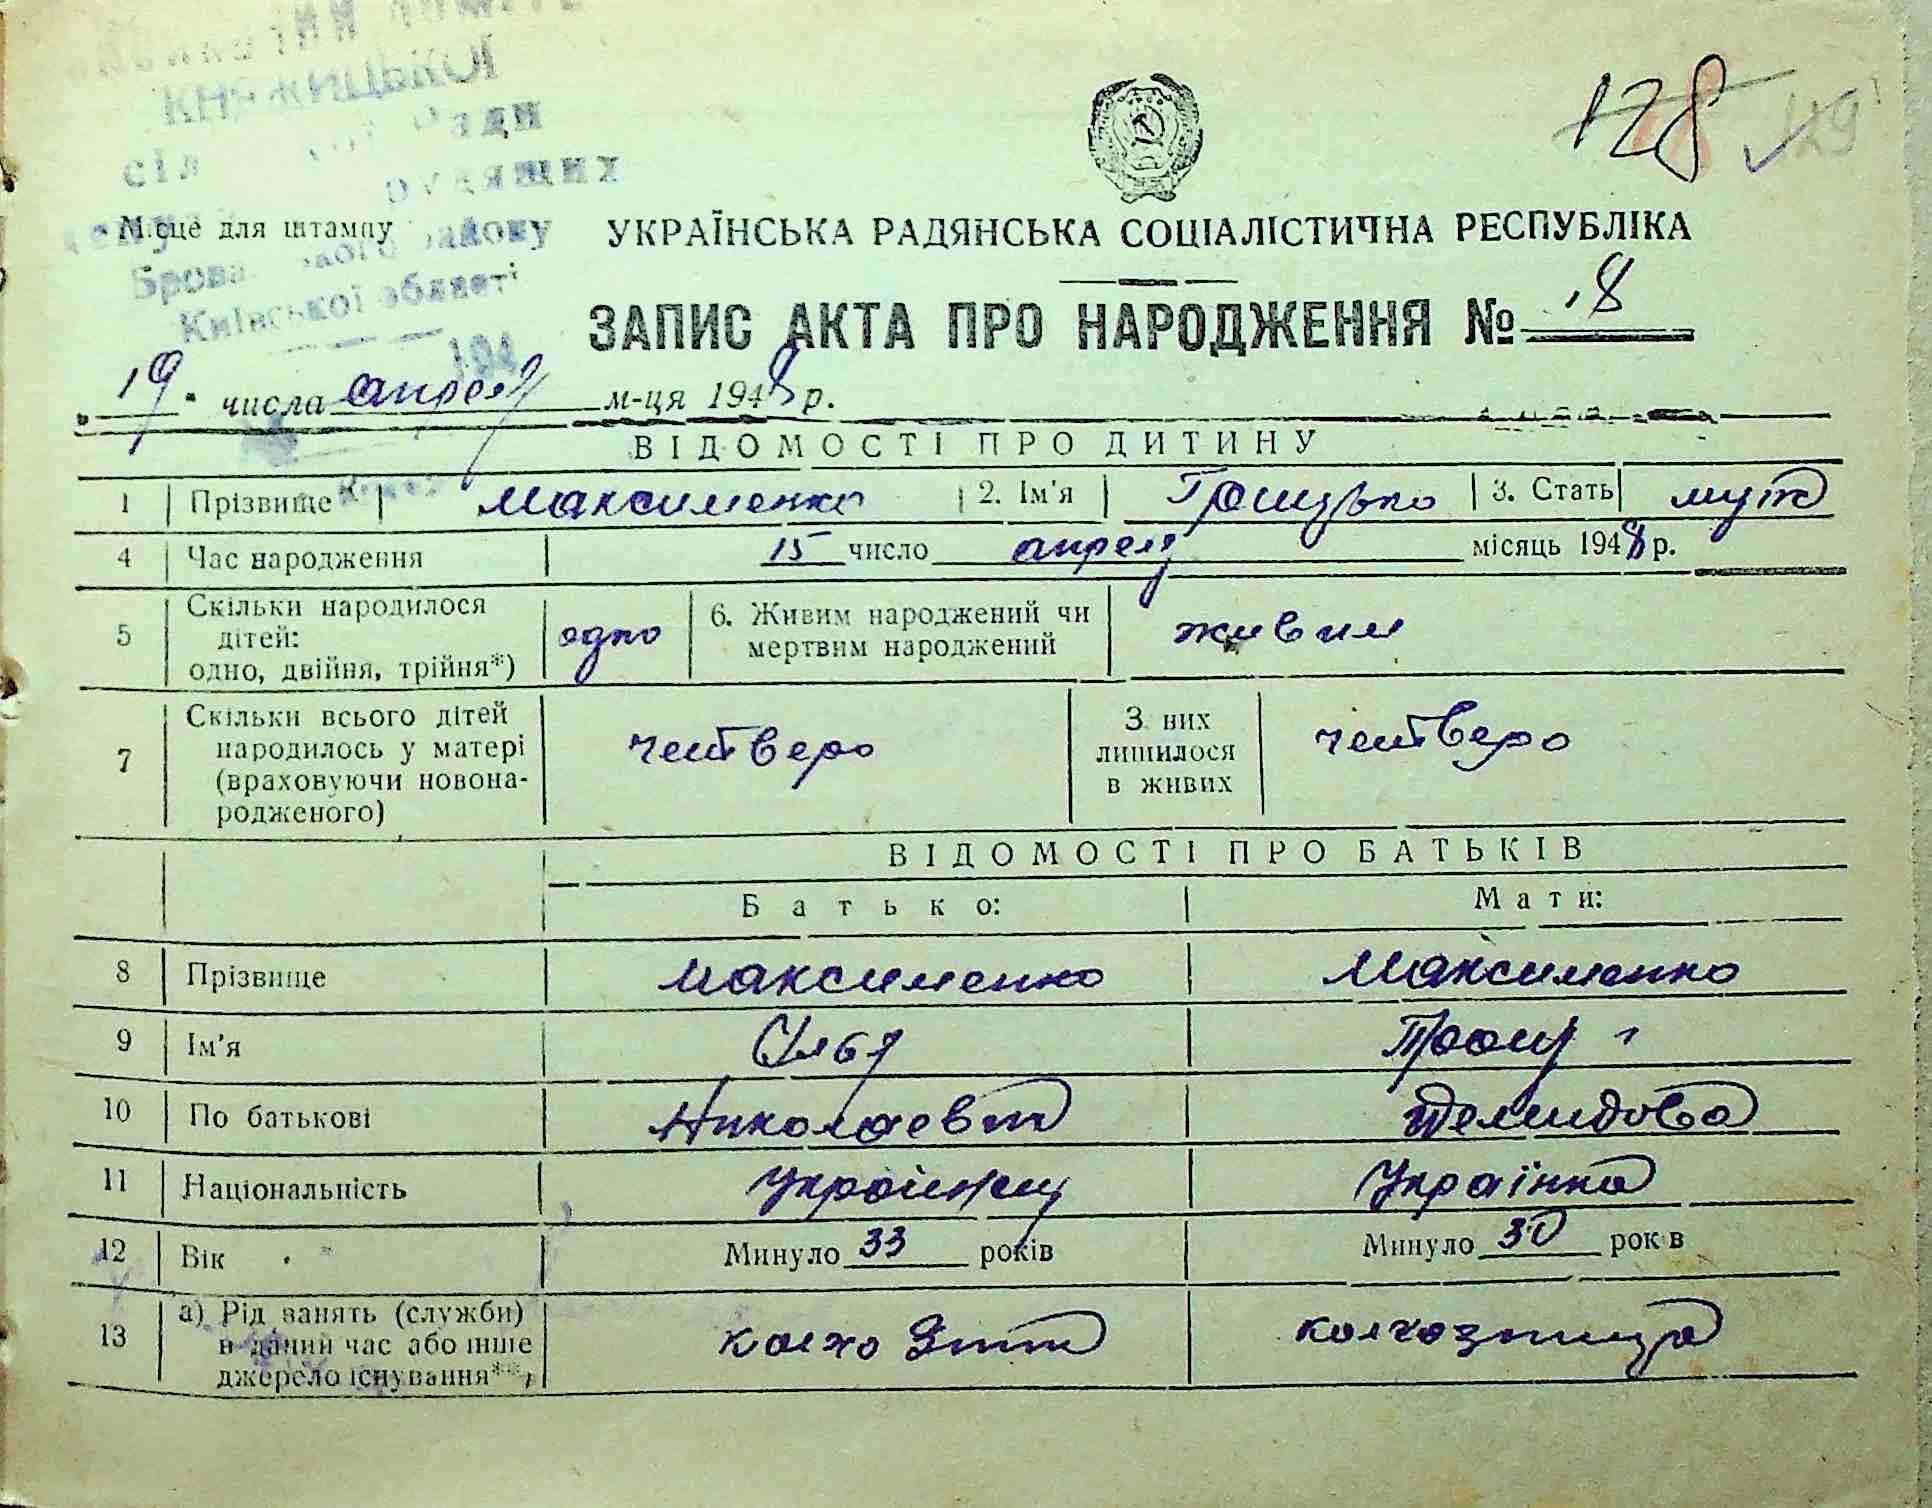 КНЯЖИЦЬКОЇ
Ради
трудящих
Місце для штампу району
Київської області
194
128 129
УКРАЇНСЬКА РАДЯНСЬКА СОЦІАЛІСТИЧНА РЕСПУБЛІКА
ЗАПИС АКТА ПРО НАРОДЖЕННЯ № 18
„19“ числа апреля м-ця 1948 р.
ВІДОМОСТІ ПРО ДИТИНУ
1 Прізвище Максименко 2. Ім'я Грицько 3. Стать муж
4 Час народження 15 число апреля місяць 1948 р.
5 Скільки народилося дітей: одно, двійня, трійня*) одно 6. Живим народжений чи мертвим народжений живим
7 Скільки всього дітей народилось у матері (враховуючи новонародженого) четверо З них лишилося в живих четверо
ВІДОМОСТІ ПРО БАТЬКІВ
Батько: Мати:
8 Прізвище Максименко Максименко
9 Ім'я Илья
10 По батькові Николаевич
11 Національність українец Українка
12 Вік Минуло 33 років Минуло 30 років
13 а) Рід занять (служби) в даний час або інше джерело існування**) колхозник колхозница